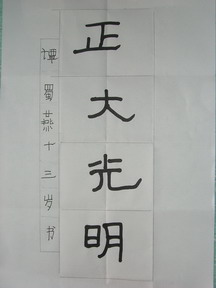 正大光明
谭蜀燕十三岁书